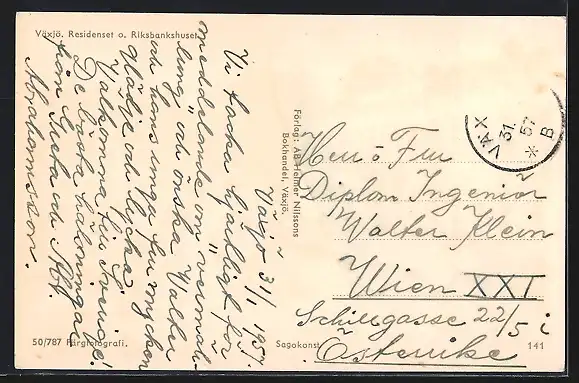 Växjö. Residenset o. Riksbankshuset
Växjö 31/1 1957.
Vi tacka hjärtligt för
meddelande om vermäh-
lung och önska Walter
och hans unga fru mycken
glädje och lycka.
Välkomna till Sverige!
De bästa hälsningar
från Greta och
Abrahamsson.
Förlag: AB Helmer Nilssons
Bokhandel, Växjö.
VÄX
31. 1. 57
* B
Herr o Fru
Diplom Ingeniör
Walter Klein
Wien XXI
Schillgasse 22/5 i
Österrike
50/787 Färgfotografi.
Sagokonst
141